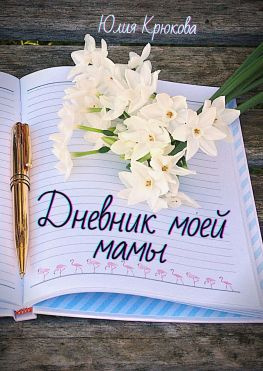 Юлия Крюкова
Дневник моей
мамы